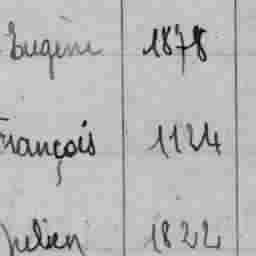 Eugène 1878
François 1124
Julien 1822